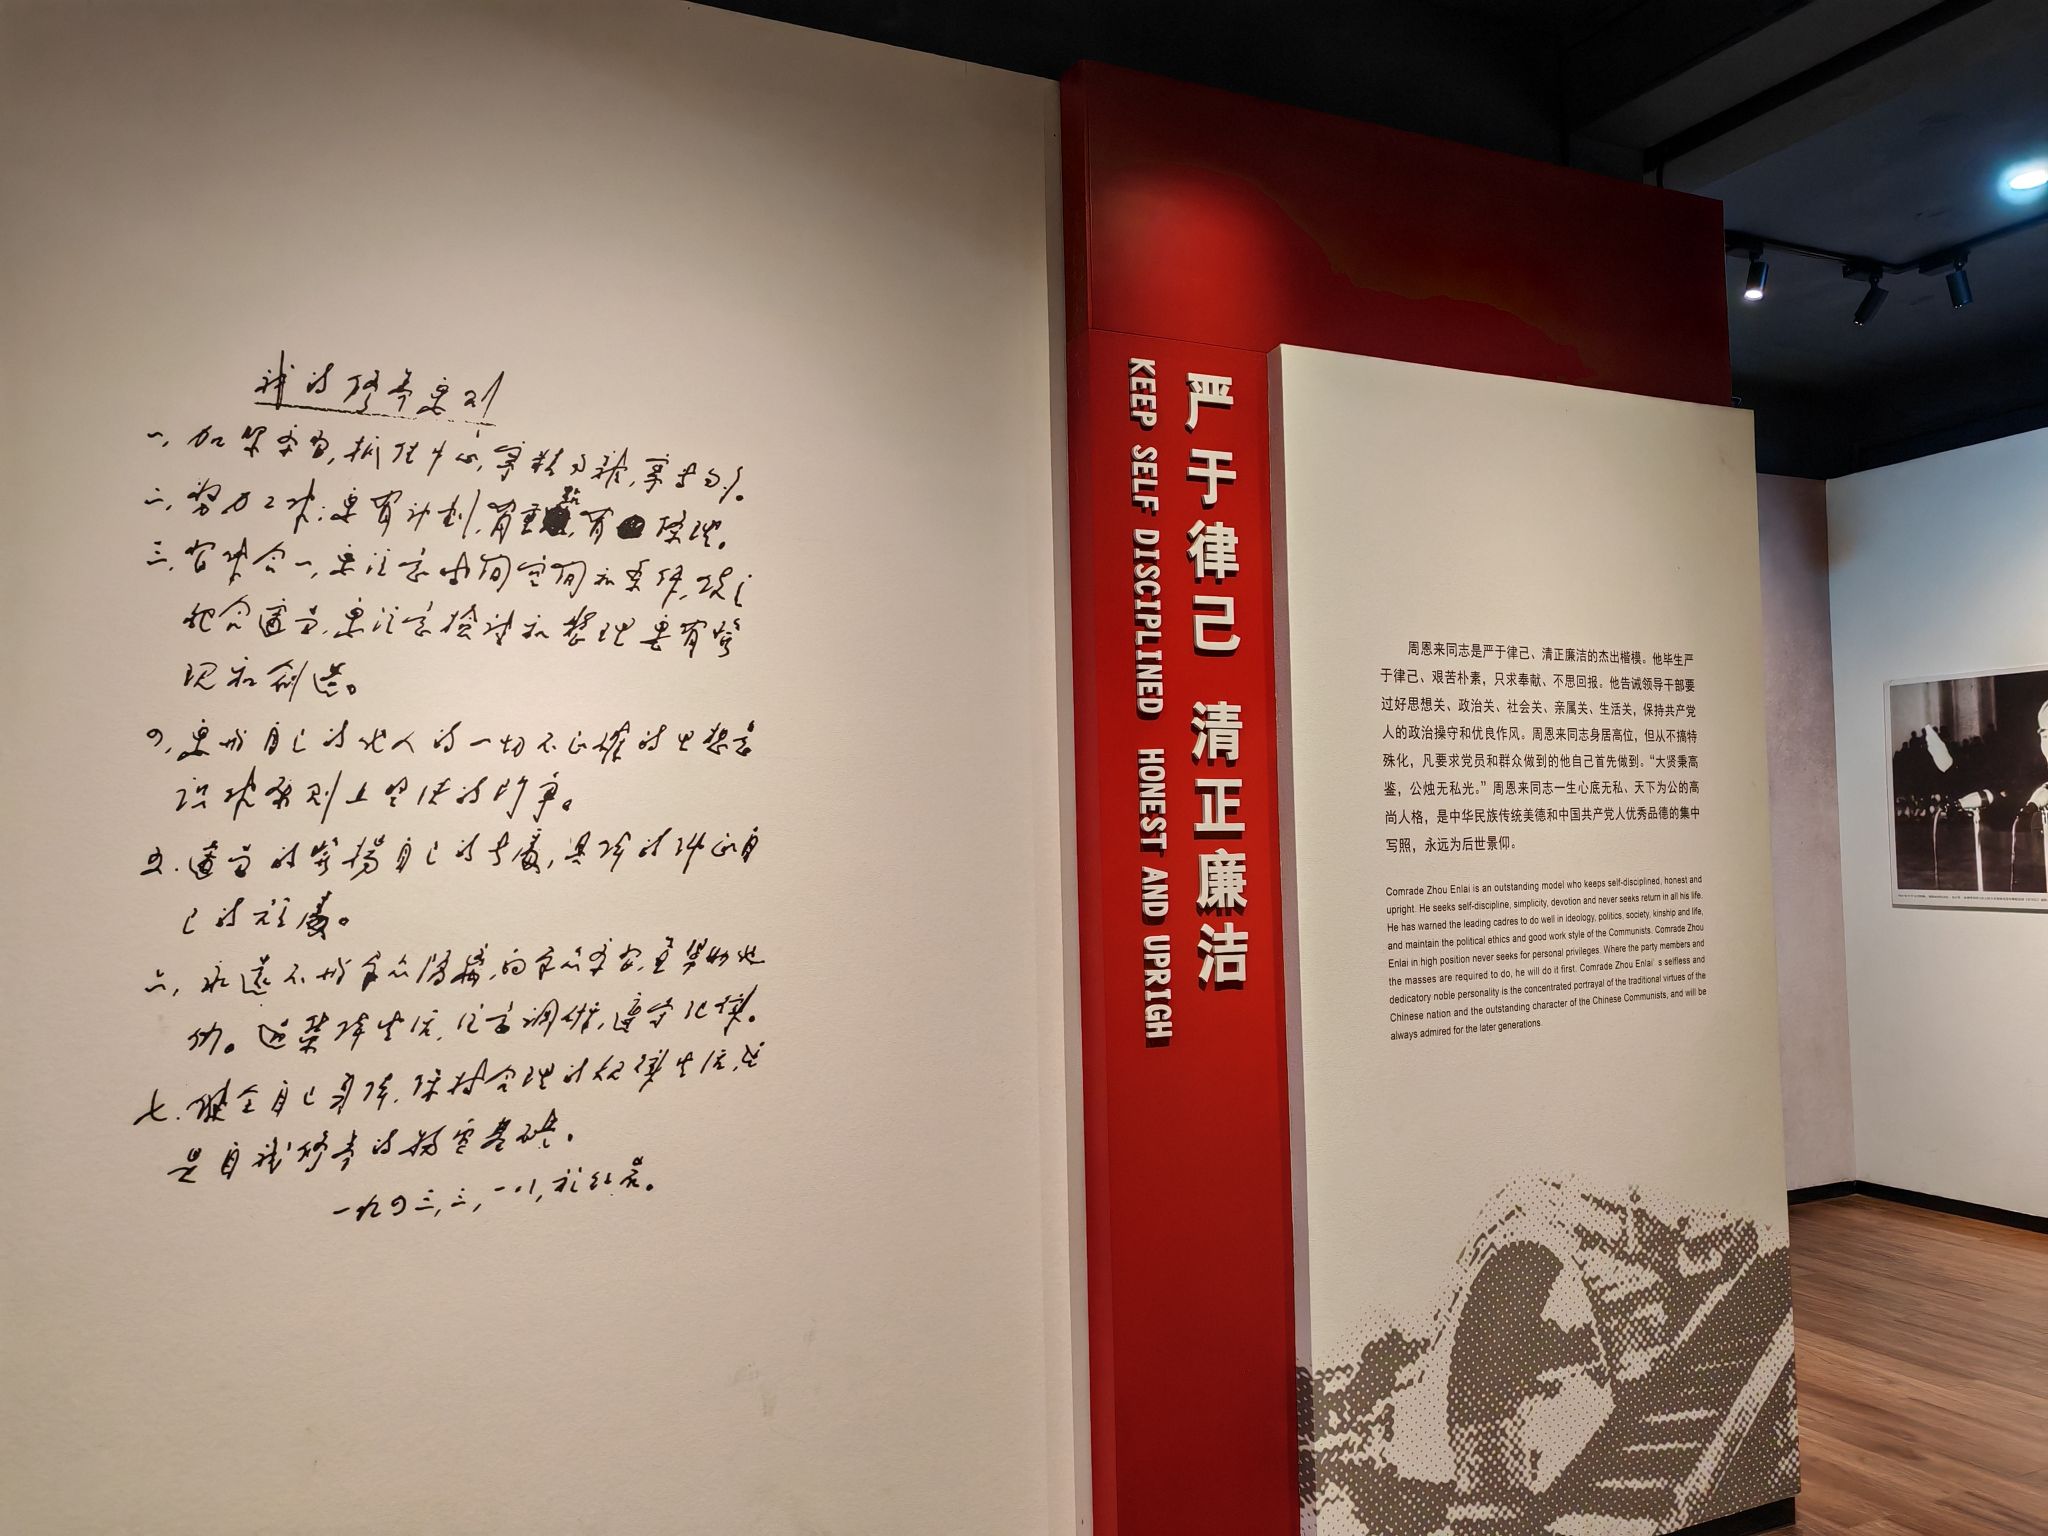 我的修养要则
一、加紧学习，抓住中心，宁精勿杂，宁专勿多。
二、努力工作，要有计划，有重点，有条理。
三、习作合一，要注意时间空间和条件，使之
配合适当，要注意检讨和整理，要有发
现和创造。
四、要与自己的他人的一切不正确的思想意
识作原则上坚决的斗争。
五、适当的发扬自己的长处，具体的纠正自
己的短处。
六、永远不与群众隔离，向群众学习，并帮助他
们。过集体生活，注意调研，遵守纪律。
七、健全自己身体，保持合理的规律生活，这
是自我修养的物质基础。
一九四三，三，一八，于红岩。
严于律己 清正廉洁
KEEP SELF DISCIPLINED HONEST AND UPRIGH
周恩来同志是严于律己、清正廉洁的杰出楷模。他毕生严
于律己、艰苦朴素，只求奉献、不思回报。他告诫领导干部要
过好思想关、政治关、社会关、亲属关、生活关，保持共产党
人的政治操守和优良作风。周恩来同志身居高位，但从不搞特
殊化，凡要求党员和群众做到的他自己首先做到。“大贤秉高
鉴，公烛无私光。”周恩来同志一生心底无私、天下为公的高
尚人格，是中华民族传统美德和中国共产党人优秀品德的集中
写照，永远为后世景仰。
Comrade Zhou Enlai is an outstanding model who keeps self-disciplined, honest and
upright. He seeks self-discipline, simplicity, devotion and never seeks return in all his life.
He has warned the leading cadres to do well in ideology, politics, society, kinship and life,
and maintain the political ethics and good work style of the Communists. Comrade Zhou
Enlai in high position never seeks for personal privileges. Where the party members and
the masses are required to do, he will do it first. Comrade Zhou Enlai's selfless and
dedicatory noble personality is the concentrated portrayal of the traditional virtues of the
Chinese nation and the outstanding character of the Chinese Communists, and will be
always admired for the later generations